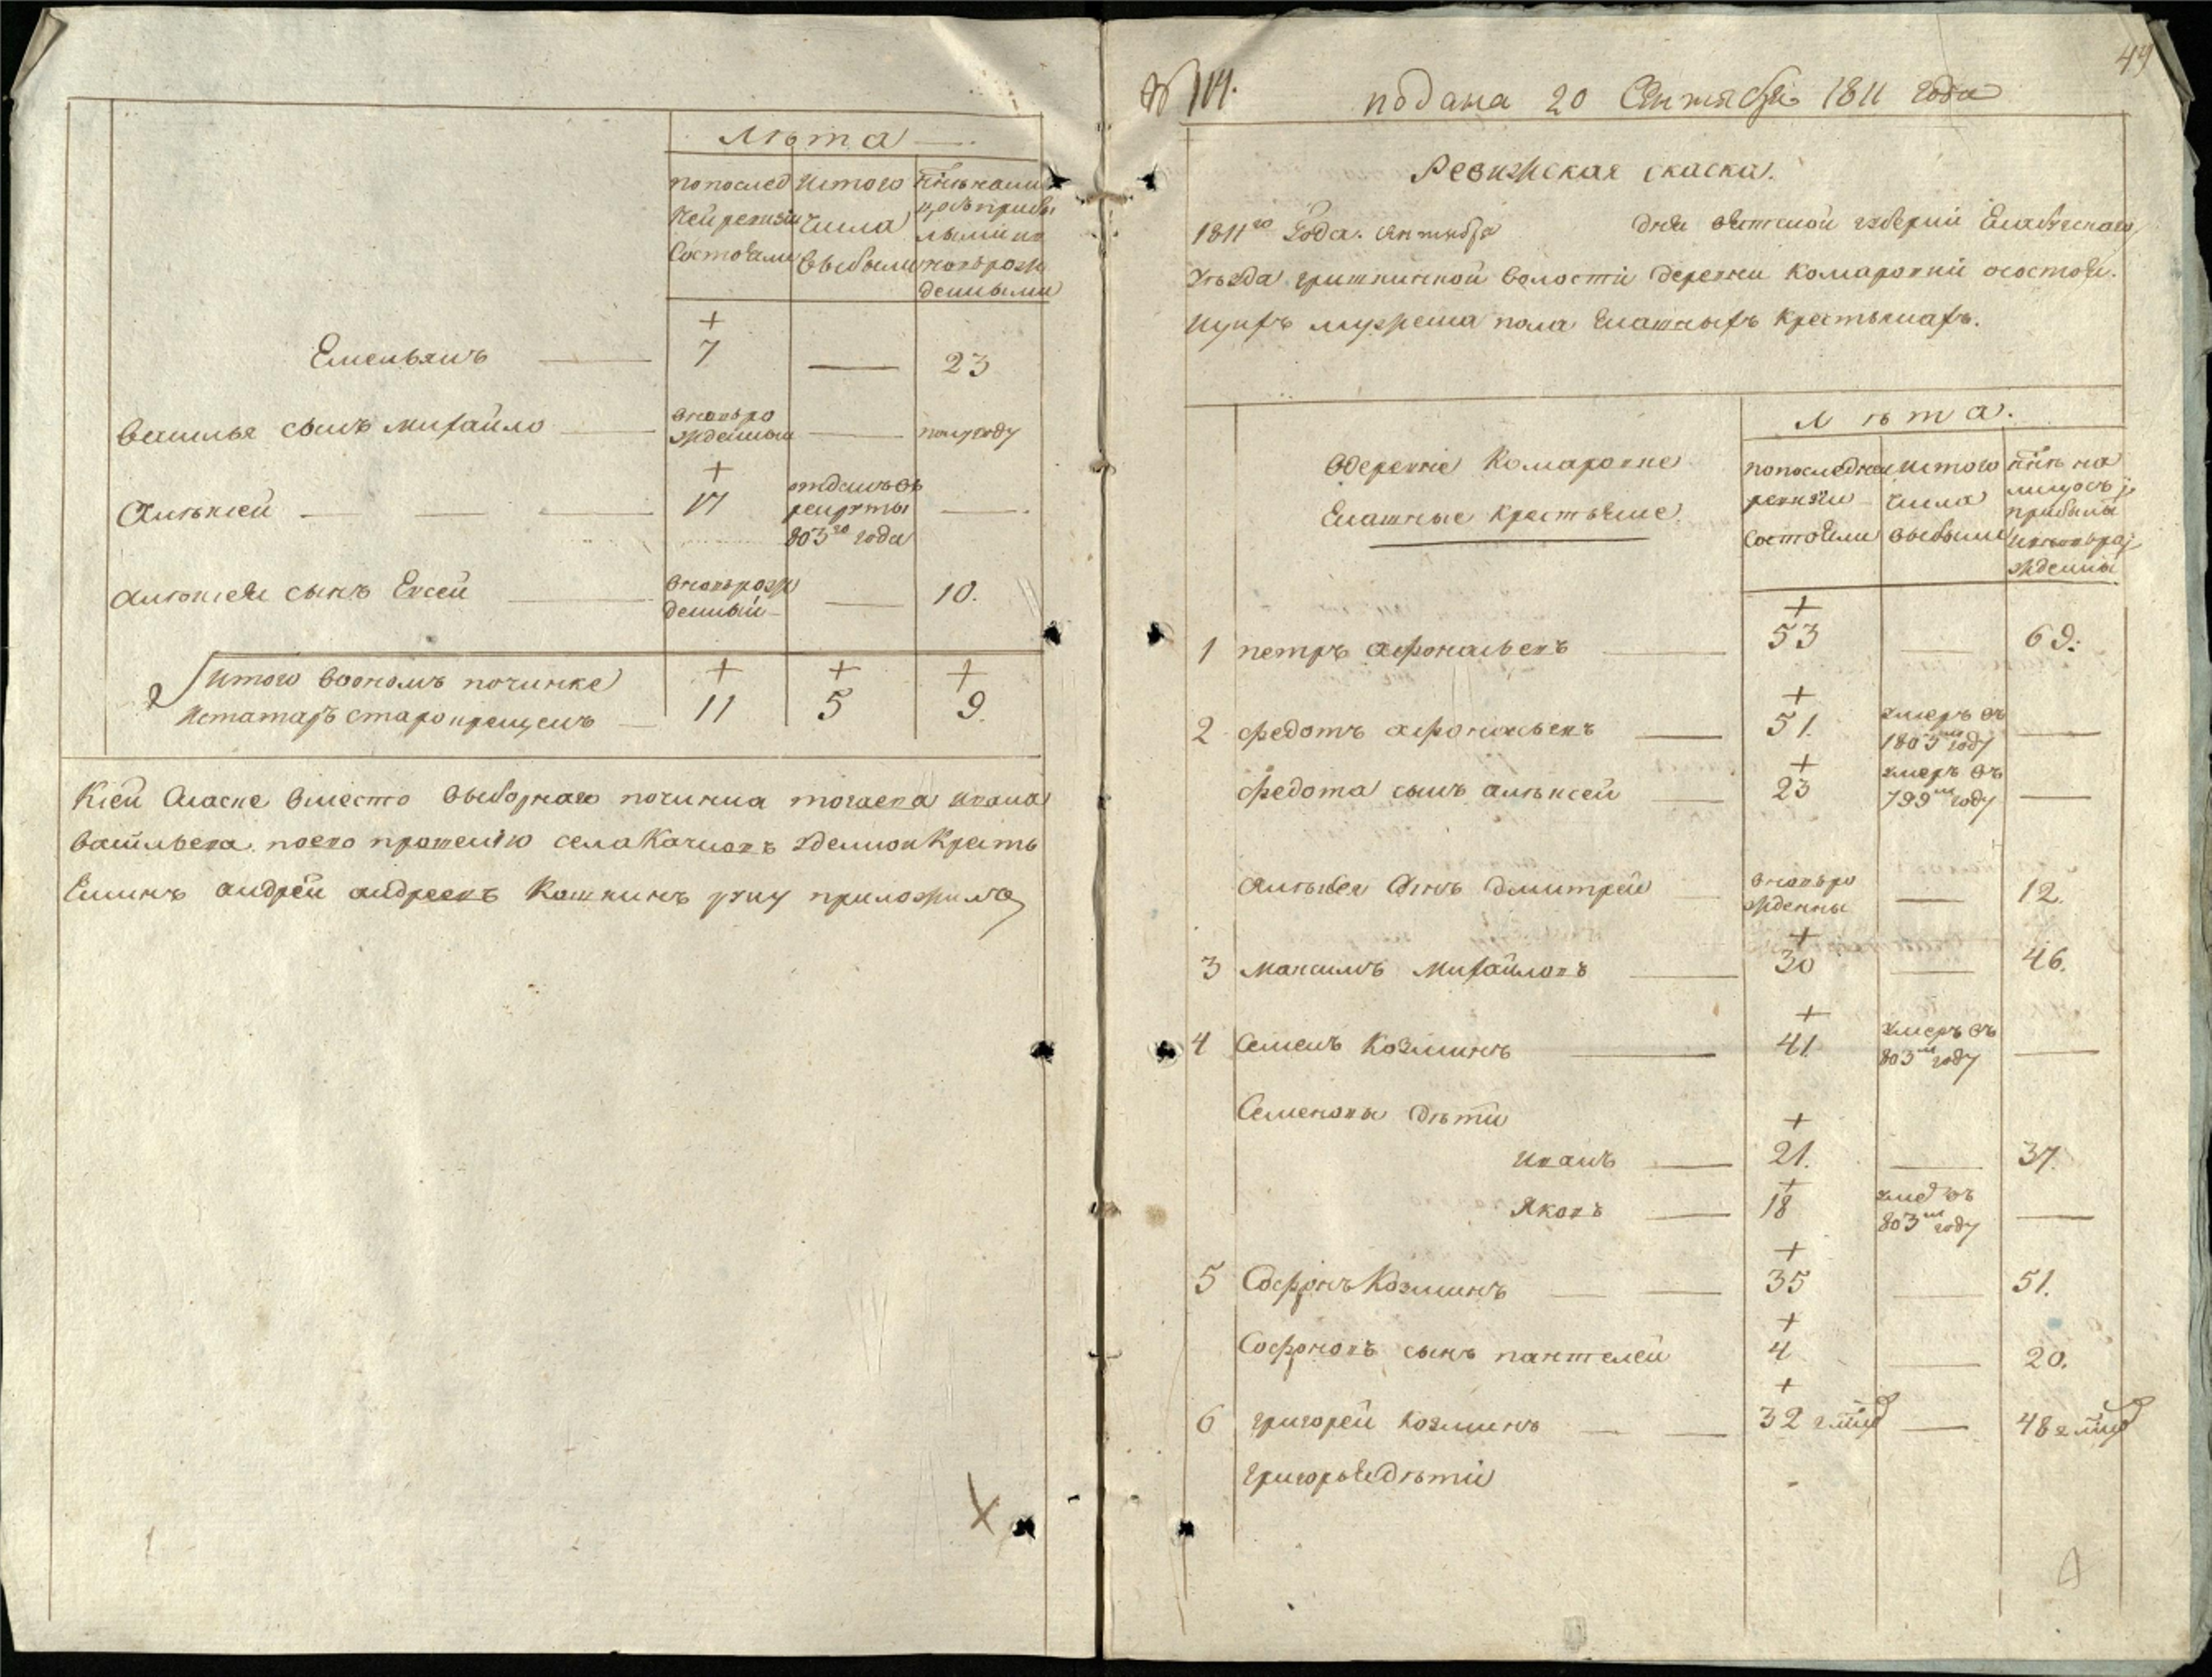 Лѣта
по послед
ней ревизіи
состояли
из того
числа
выбыли
нынѣ на ли
цо съ прибы
лыми и
новорож
денными
Емельянъ 7 — 23
Василья сынъ Михайло новоро
жденный — полугоду
Алексѣй 17 отданъ въ
рекруты
803го года —
Алексѣя сынъ Евсей новорож
денный — 10.
Итого во ономъ починке
2 из татаръ старокрещенъ 11 5 9.
К сей скаске вместо выборнаго починка Ивана
Васильева по ево прошенію села Крестья
нинъ Андрей Андреевъ Кошкинъ руку приложилъ
49
№ 14. подана 20 Сентября 1811 года
Ревижская скаска.
1811го Года. сентября дня вятской губерніи Елабужскаго
уѣзда волости деревни Комаровки о состоя
щихъ мужеска пола крестьянахъ.
В деревне Комаровке
крестьяне
Лѣта.
по последней
ревизіи
состояли
из того
числа
выбыли
нынѣ на
лицо съ
прибылы
и новоро
жденны
1 петръ афонасьевъ 53 — 69.
2 федотъ афонасьевъ 51. умеръ въ
1803м году —
федота сынъ алексѣй 23 умеръ въ
799м году —
Алексѣя сынъ Дмитрей новоро
жденны — 12.
3 Максимъ Михайловъ 30 — 46.
4 Семенъ Козминъ 41 умеръ въ
803м году —
Семеновы дѣти
Иванъ 21. — 37.
Яковъ 18 умеръ въ
803м году —
5 Софронъ Козминъ 35 — 51.
Софоновъ сынъ пантелей 4 — 20.
6 григорей Козминъ 32 — 48
григорья дѣти